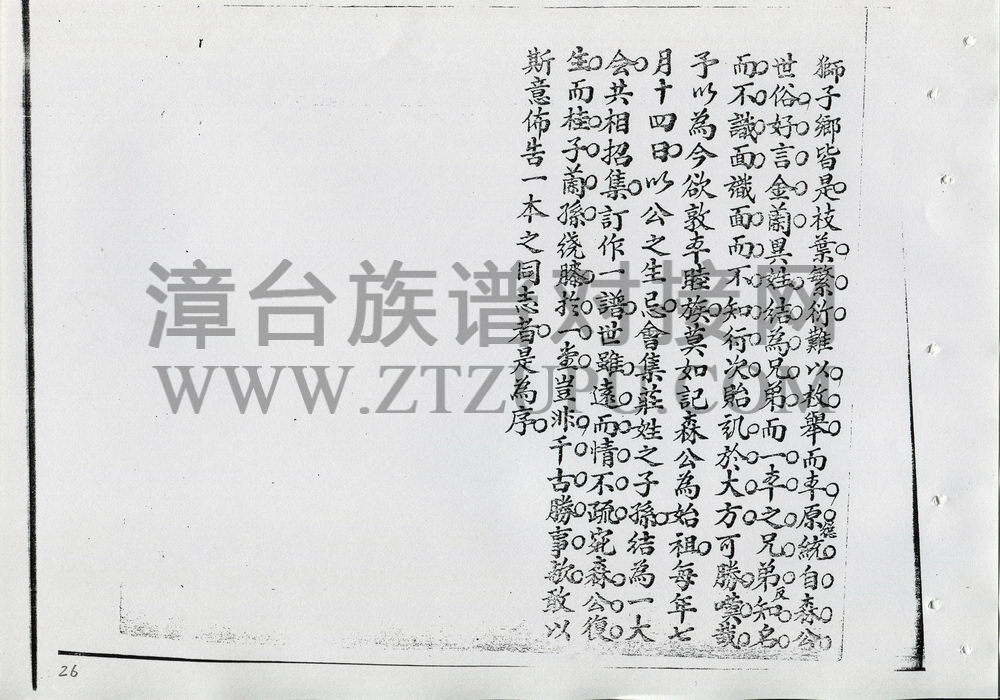 獅子鄉皆是枝葉繁衍難以枚舉而本原統自森公
世俗好言金蘭異姓結為兄弟而一本之兄弟反知名
而不識面識面而不知行次貽訊於大方可勝嘆哉
予以為今欲敦本睦族莫如記森公為始祖每年七
月十四日以公之生忌會集莊姓之子孫結為一大
会共相招集訂作一譜世雖遠而情不疏宛森公復
生而桂子蘭孫绕膝於一堂豈非千古勝事欤敢以
斯意佈告一本之同志者是為序
漳台族谱对接网
WWW.ZTZUPU.COM
26